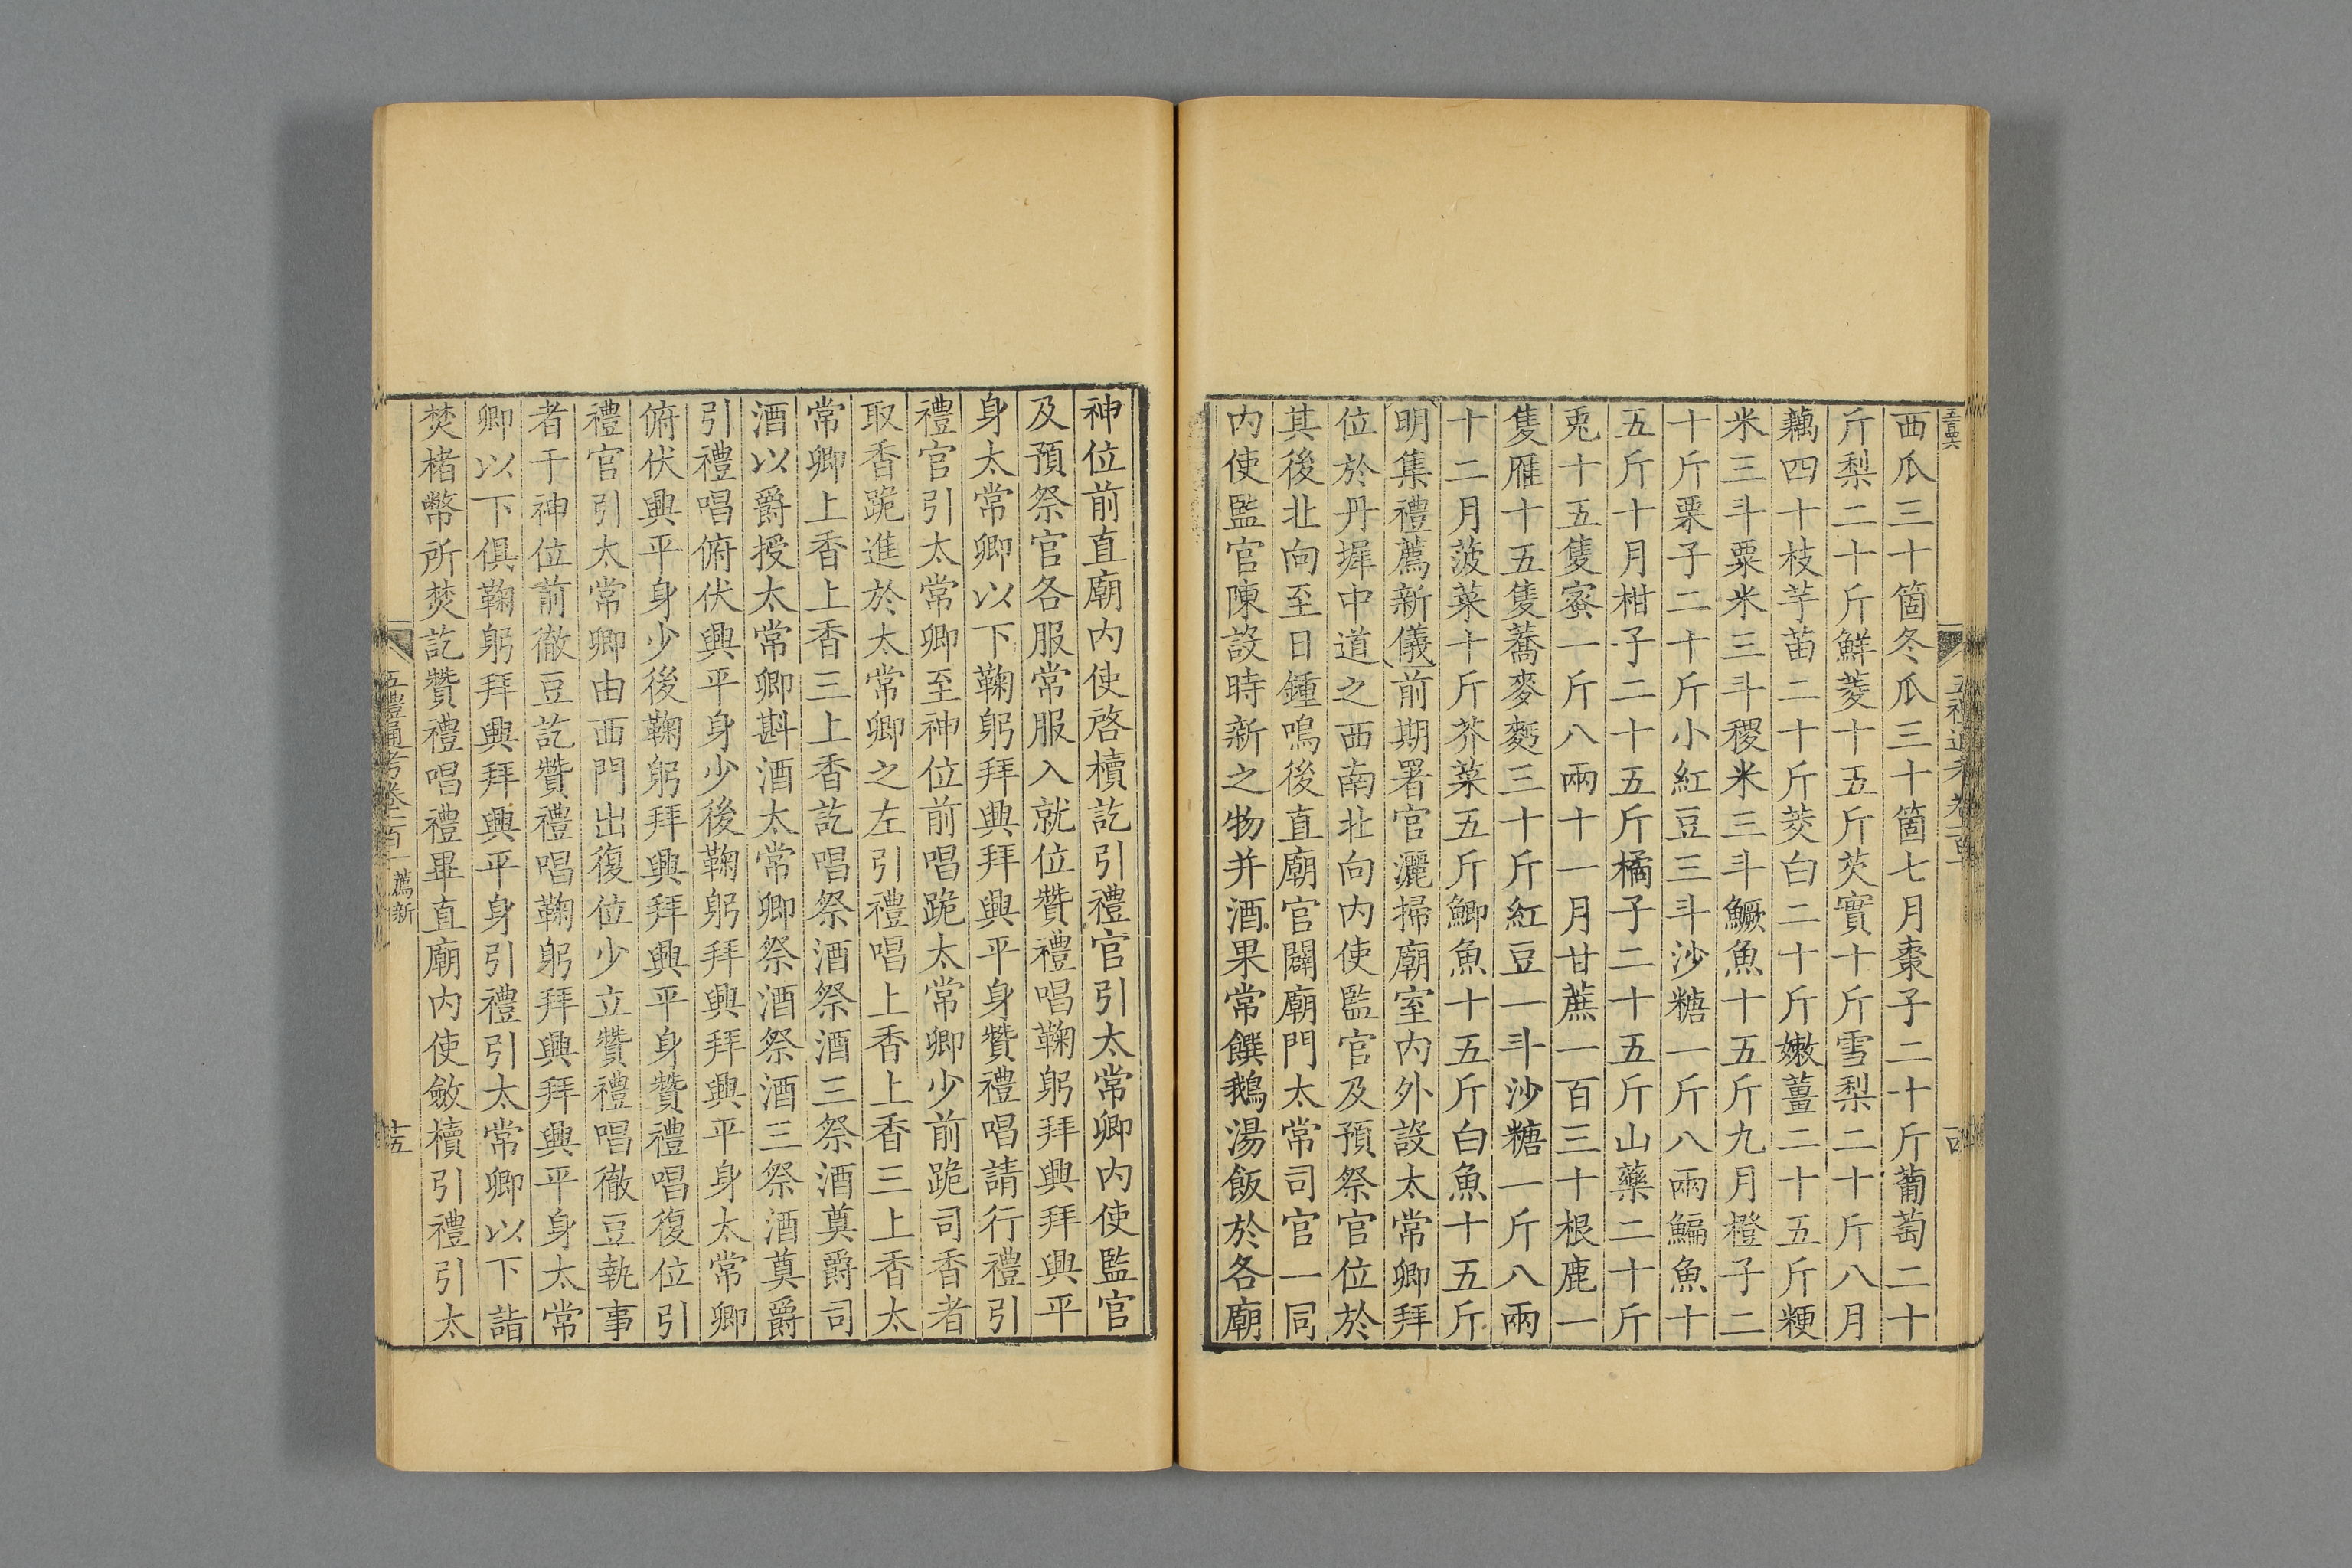 西瓜三十箇冬瓜三十箇七月棗子二十斤葡萄二十
斤梨二十斤鮮菱十五斤芡實十斤雪梨二十斤八月
藕四十枝芋苗二十斤茭白二十斤嫩薑二十五斤粳
米三斗粟米三斗稷米三斗鱖魚十五斤九月橙子二
十斤栗子二十斤小紅豆三斗沙糖一斤八兩鯿魚十
五斤十月柑子二十五斤橘子二十五斤山藥二十斤
兎十五隻蜜一斤八兩十一月甘蔗一百三十根鹿一
隻雁十五隻蕎麥麪三十斤紅豆一斗沙糖一斤八兩
十二月菠菜十斤芥菜五斤鯽魚十五斤白魚十五斤
明集禮薦新儀前期署官灑掃廟室内外設太常卿拜
位於丹墀中道之西南北向内使監官及預祭官位於
其後北向至日鍾鳴後直廟官闢廟門太常司官一同
内使監官陳設時新之物并酒果常饌鵝湯飯於各廟
神位前直廟内使啓櫝訖引禮官引太常卿内使監官
及預祭官各服常服入就位贊禮唱鞠躬拜興拜興平
身太常卿以下鞠躬拜興拜興平身贊禮唱請行禮引
禮官引太常卿至神位前唱跪太常卿少前跪司香者
取香跪進於太常卿之左引禮唱上香上香三上香太
常卿上香上香三上香訖唱祭酒祭酒三祭酒奠爵司
酒以爵授太常卿斟酒太常卿祭酒祭酒三祭酒奠爵
引禮唱俯伏興平身少後鞠躬拜興拜興平身太常卿
俯伏興平身少後鞠躬拜興拜興平身贊禮唱復位引
禮官引太常卿由西門出復位少立贊禮唱徹豆執事
者于神位前徹豆訖贊禮唱鞠躬拜興拜興平身太常
卿以下俱鞠躬拜興拜興平身引禮引太常卿以下詣
焚楮幣所焚訖贊禮唱禮畢直廟内使斂櫝引禮引太
五禮通考卷一百一 薦新 十五